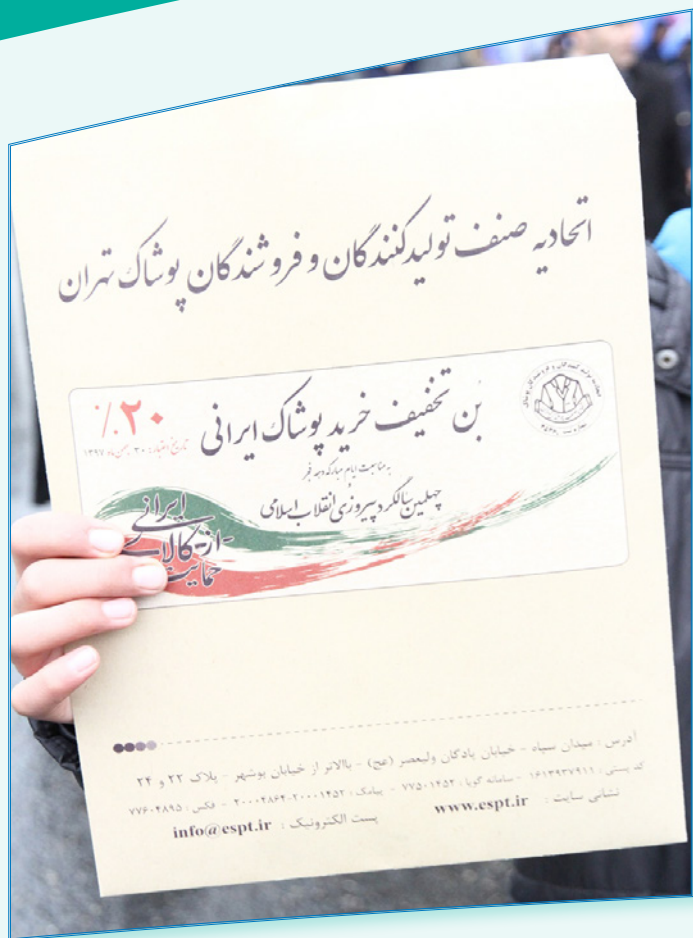 اتحادیه صنف تولیدکنندگان و فروشندگان پوشاک تهران
بُن تخفیف خرید پوشاک ایرانی
۲۰٪
تاریخ اعتبار: ۳۰ بهمن ماه ۱۳۹۷
به مناسبت ایام مبارکه دهه فجر
و
چهلمین سالگرد پیروزی انقلاب اسلامی
حمایت از کالای ایرانی
آدرس : میدان سپاه - خیابان پادگان ولیعصر (عج) - بالاتر از خیابان بوشهر - پلاک ۲۲ و ۲۴
کد پستی : ۱۶۱۳۹۳۷۹۱۱ - سامانه گویا : ۷۷۵۰۱۴۵۲ - پیامک : ۲۰۰۰۱۴۵۲-۲۰۰۰۲۸۶۴ - فکس : ۷۷۶۰۴۸۹۵
نشانی سایت : www.espt.ir
پست الکترونیک : info@espt.ir